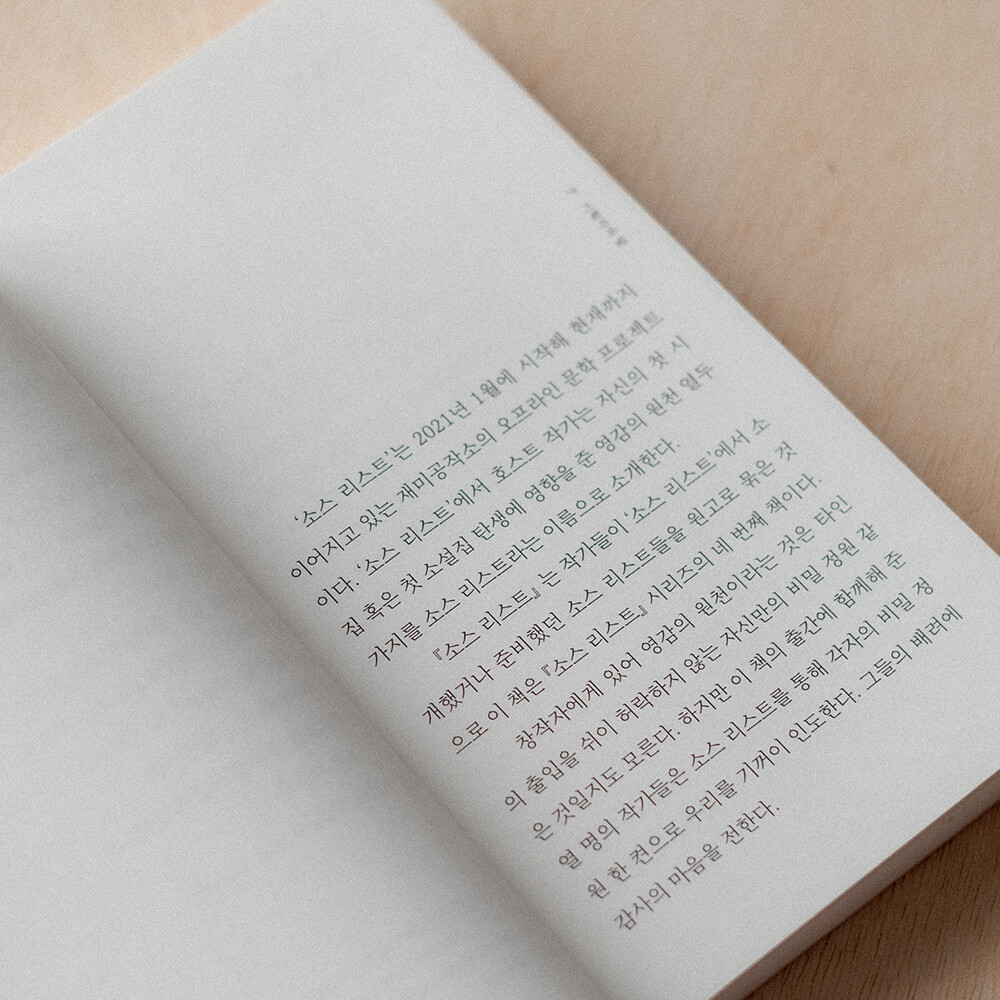 ‘소스 리스트’는 2021년 1월에 시작해 현재까지
이어지고 있는 재미공작소의 오프라인 문학 프로젝트
이다. ‘소스 리스트’에서 호스트 작가는 자신의 첫 시
집 혹은 첫 소설집 탄생에 영향을 준 영감의 원천 열두
가지를 소스 리스트라는 이름으로 소개한다.
『소스 리스트』는 작가들이 ‘소스 리스트’에서 소
개했거나 준비했던 소스 리스트들을 원고로 묶은 것
으로 이 책은 『소스 리스트』 시리즈의 네 번째 책이다.
창작자에게 있어 영감의 원천이라는 것은 타인
의 출입을 쉬이 허락하지 않는 자신만의 비밀 정원 같
은 것일지도 모른다. 하지만 이 책의 출간에 함께해 준
열 명의 작가들은 소스 리스트를 통해 각자의 비밀 정
원 한 켠으로 우리를 기꺼이 인도한다. 그들의 배려에
감사의 마음을 전한다.